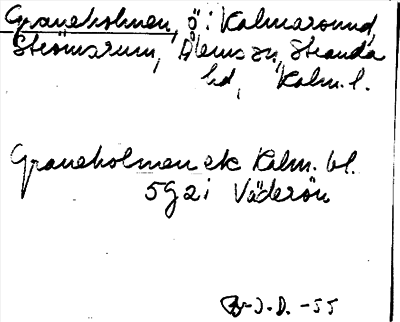 Graneholmen, ö i Kalmarsund,
Strömsrum, Ålems sn, Stranda
hd, Kalm. l.
Graneholmen ek Kalm. bl.
5921 Väderön
J. D. -55